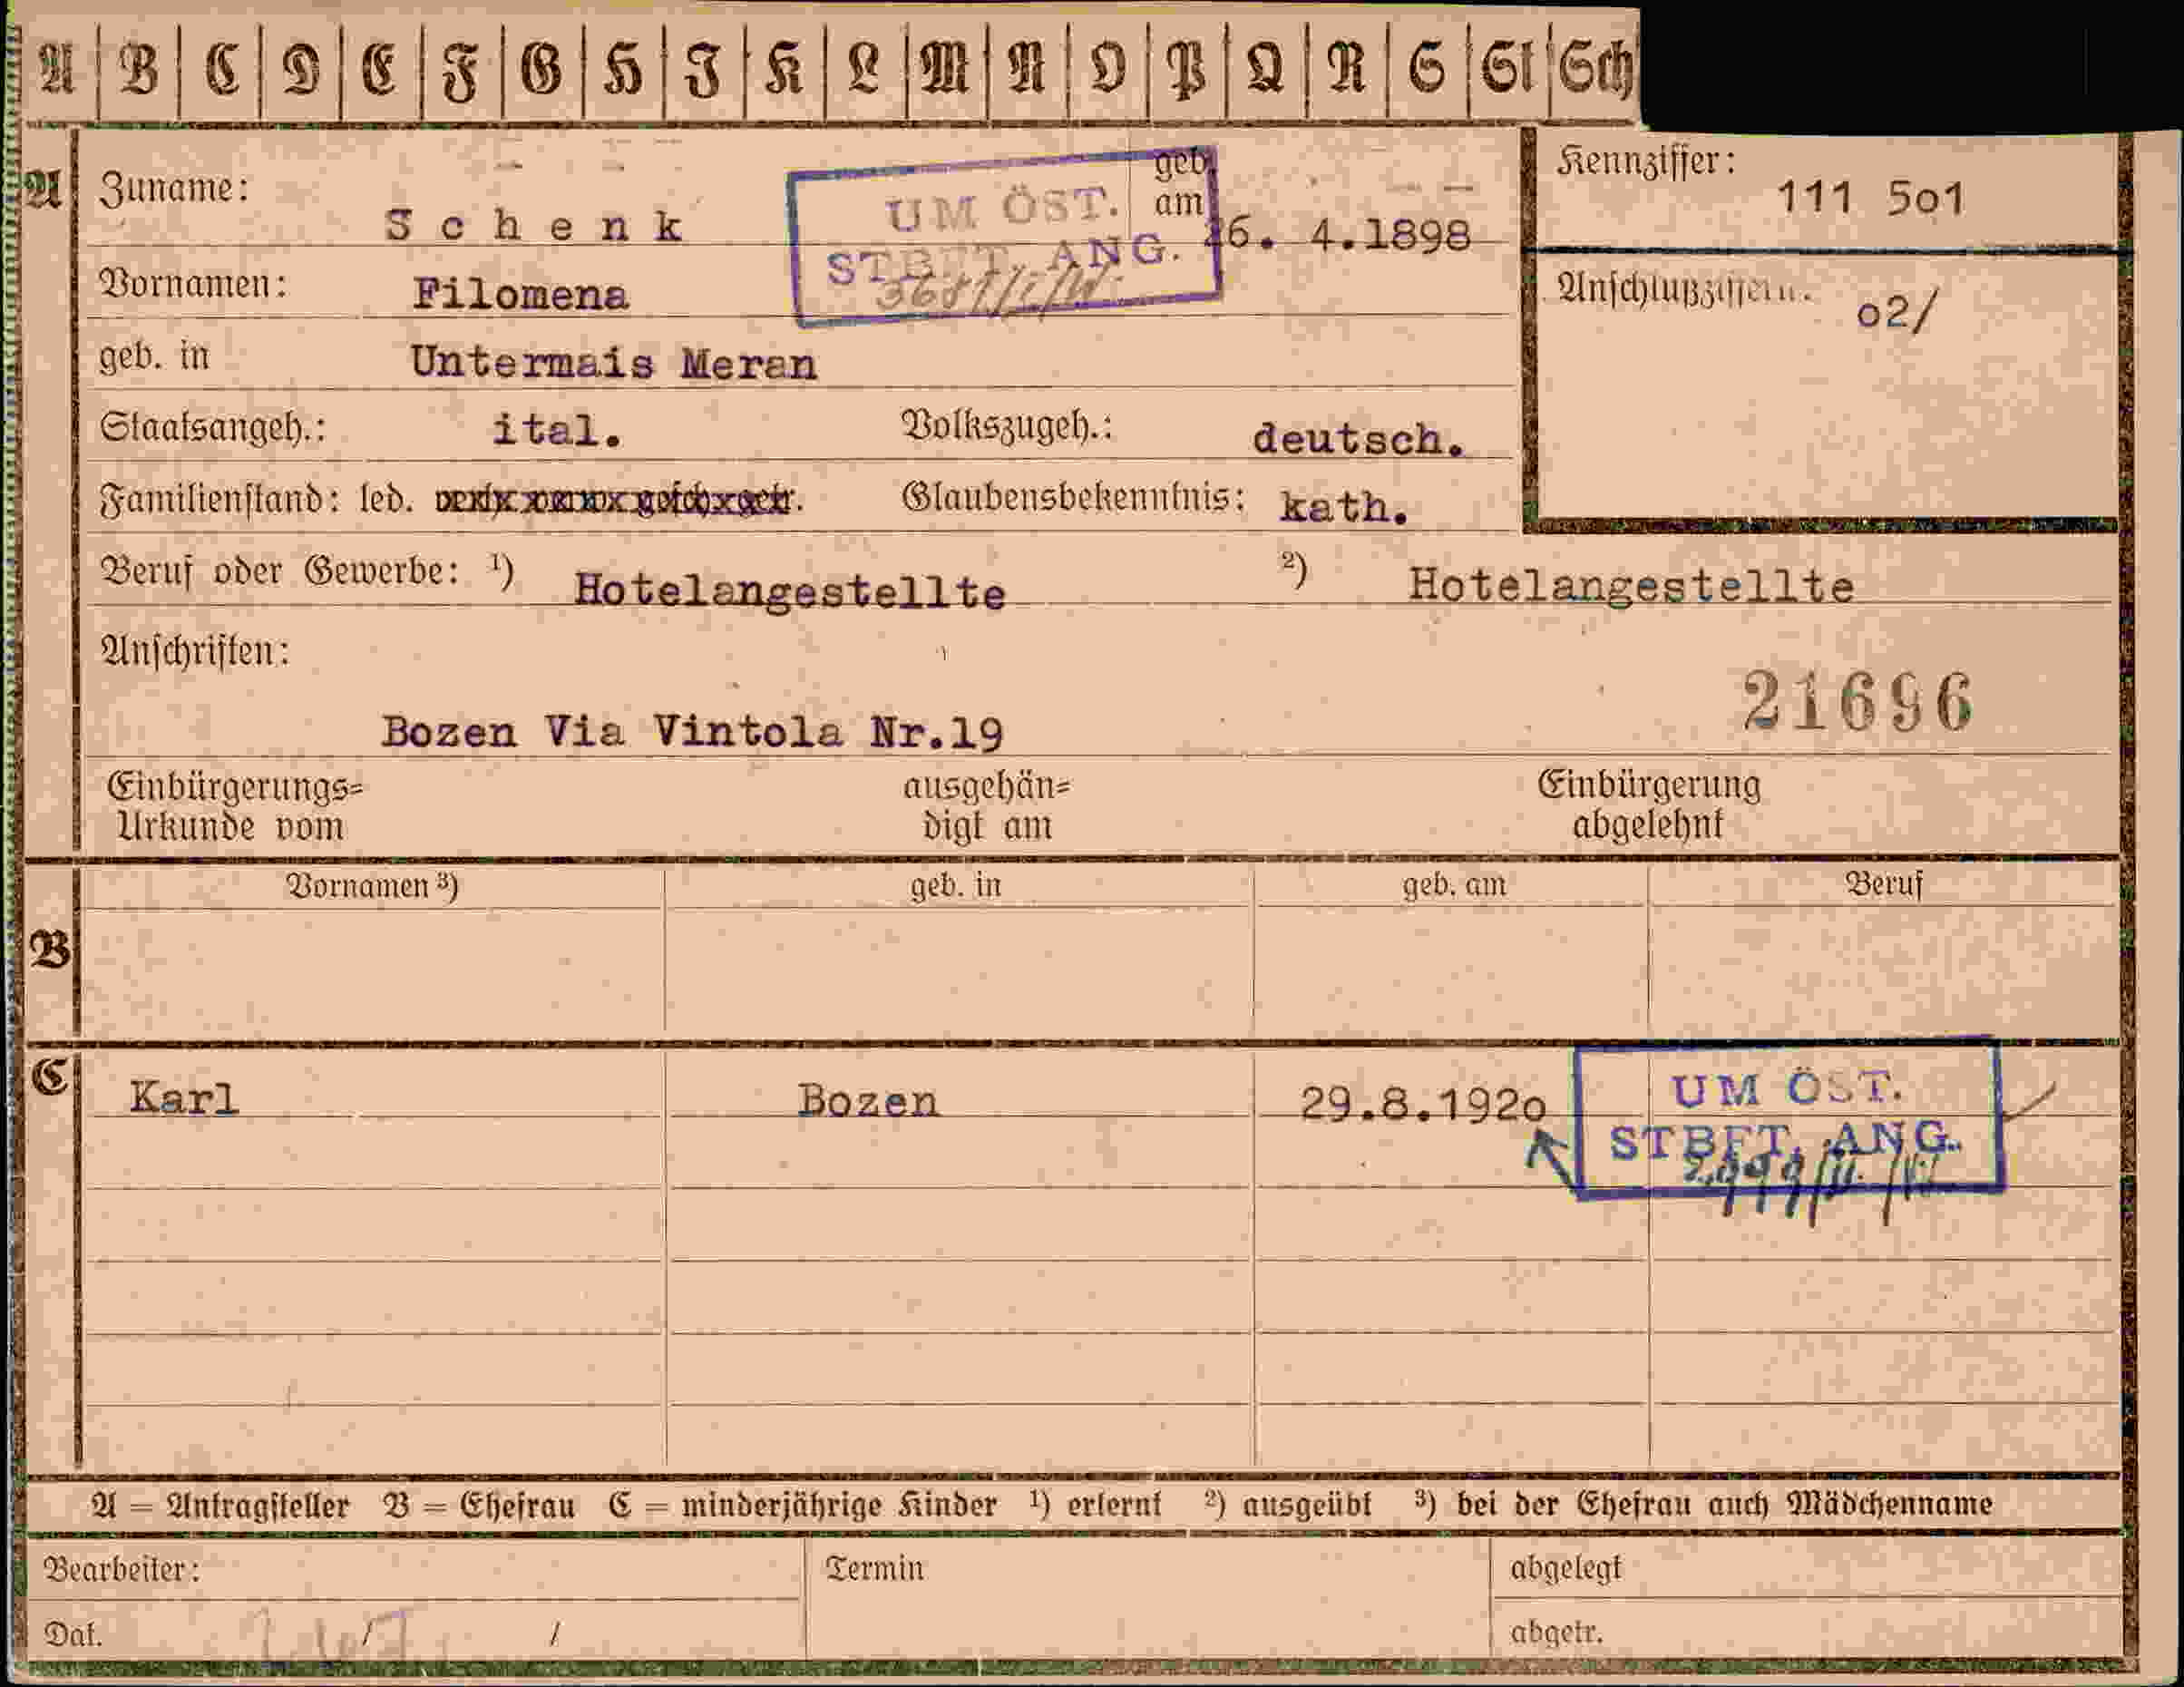 A B C D E F G H I K L M N O P Q R S St Sch
A Zuname: S c h e n k geb. am 26. 4.1898
UM ÖST.
STBFT. ANG.
Kennziffer: 111 5o1
Vornamen: Filomena
Anschlußziffern: o2/
geb. in Untermais Meran
Staatsangeh.: ital. Volkszugeh.: deutsch.
Familienstand: led. verh. verw. gesch. getr. Glaubensbekenntnis: kath.
Beruf oder Gewerbe: ¹) Hotelangestellte ²) Hotelangestellte
Anschriften:
21696
Bozen Via Vintola Nr.19
Einbürgerungs= ausgehän= Einbürgerung
Urkunde vom digt am abgelehnt
B Vornamen ³) geb. in geb. am Beruf
C Karl Bozen 29.8.192o
UM ÖST.
STBFT. ANG.
A = Antragsteller B = Ehefrau C = minderjährige Kinder ¹) erlernt ²) ausgeübt ³) bei der Ehefrau auch Mädchenname
Bearbeiter: Termin abgelegt
Dat. / / abgetr.